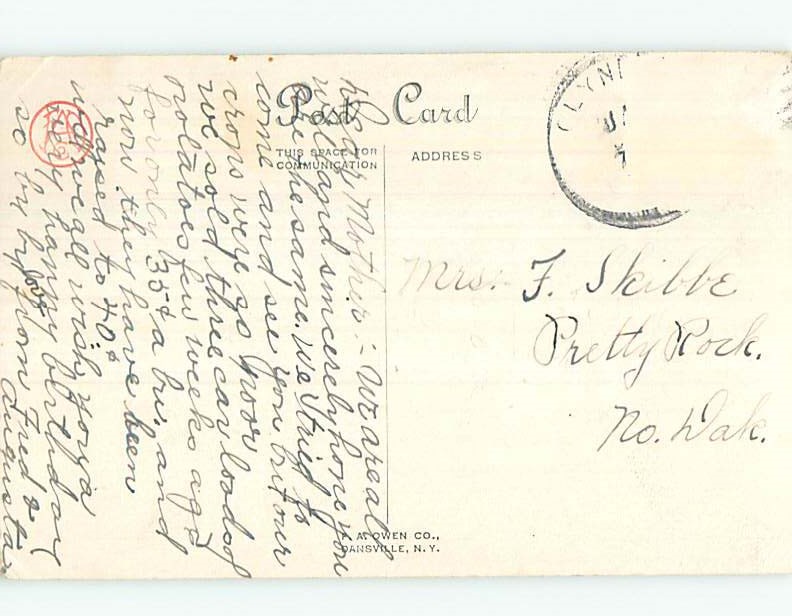 Post Card
THIS SPACE FOR
COMMUNICATION
ADDRESS
Mother:- We are all
well and sincerely hope you
are the same. We tried to
come and see you but our
crops were so poor
we sold three car loads of
potatoes few weeks ago
for only 35¢ a bu. and
now they have been
raised to 40¢
well we all wish you a
very happy birthday
so by by from Fred &
Augusta
Mrs. F. Skibbe
Pretty Rock.
No. Dak.
F. A. OWEN CO.,
DANSVILLE, N.Y.